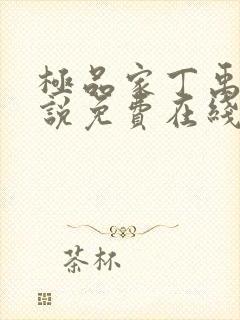 極品家丁禹
說免費在綫
茶杯